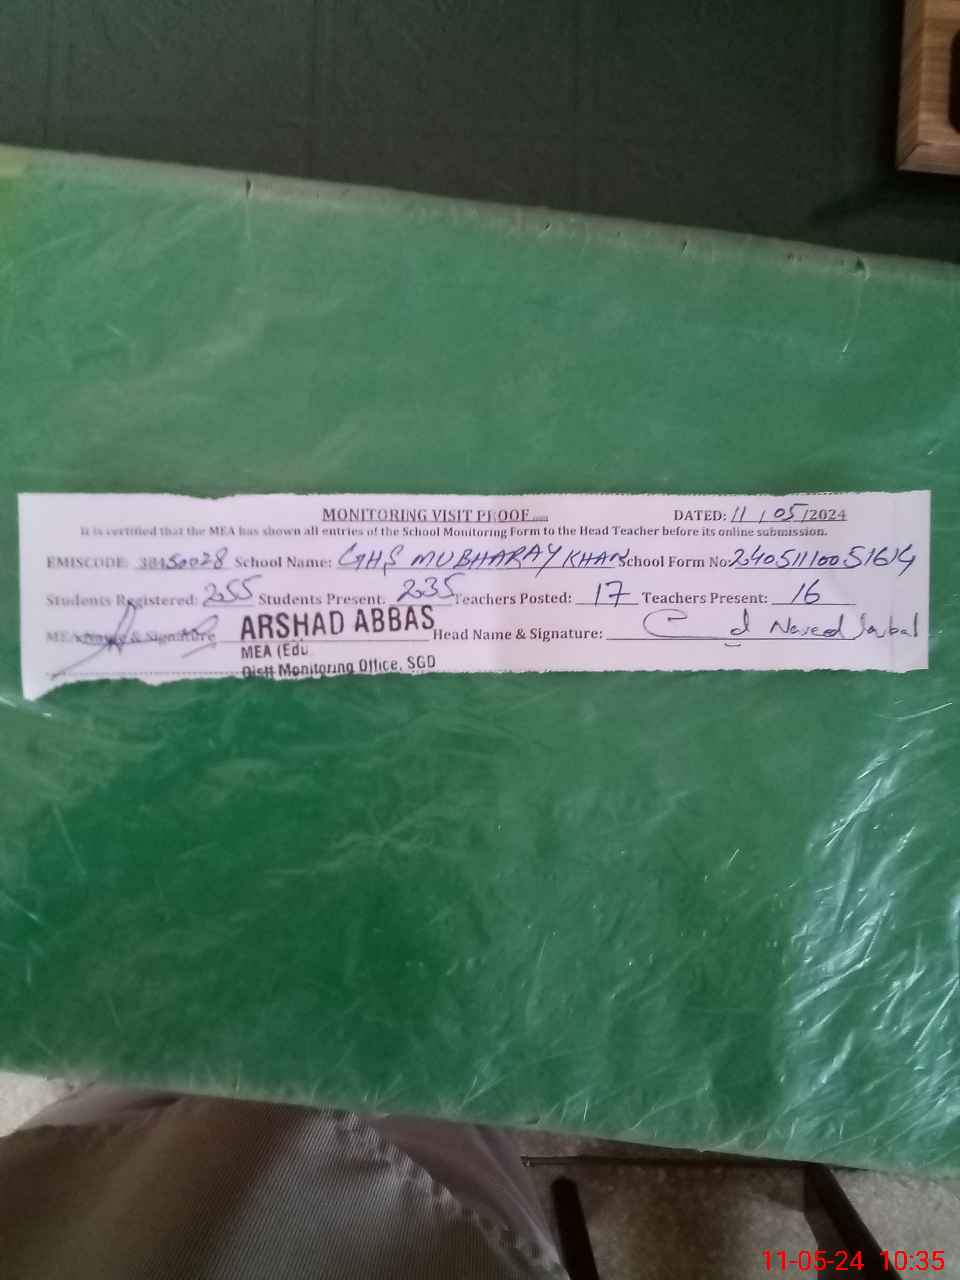 MONITORING VISIT PROOF DATED: 11/05/2024
It is certified that the MEA has shown all entries of the School Monitoring Form to the Head Teacher before its online submission.
EMISCODE: 38450028 School Name: GHS MUBHARAY KHAN School Form No: 24051110051614
Students Registered: 255 Students Present: 235 Teachers Posted: 17 Teachers Present: 16
MEA Name & Signature ARSHAD ABBAS Head Name & Signature: Naveed Iqbal
MEA (Edu
Distt Monitoring Office, SGD
11-05-24 10:35